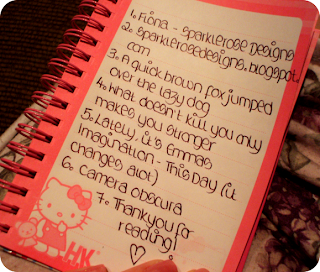 1. Fiona - Sparklerose Designs
2. sparklerosedesigns.blogspot.
com
3. A quick brown fox jumped
over the lazy dog
4. What doesn't kill you only
makes you stronger
5. Lately, it's Emma's
Imagination - This Day (it
changes alot)
6. Camera obscura
7. Thankyou for
reading!
HK